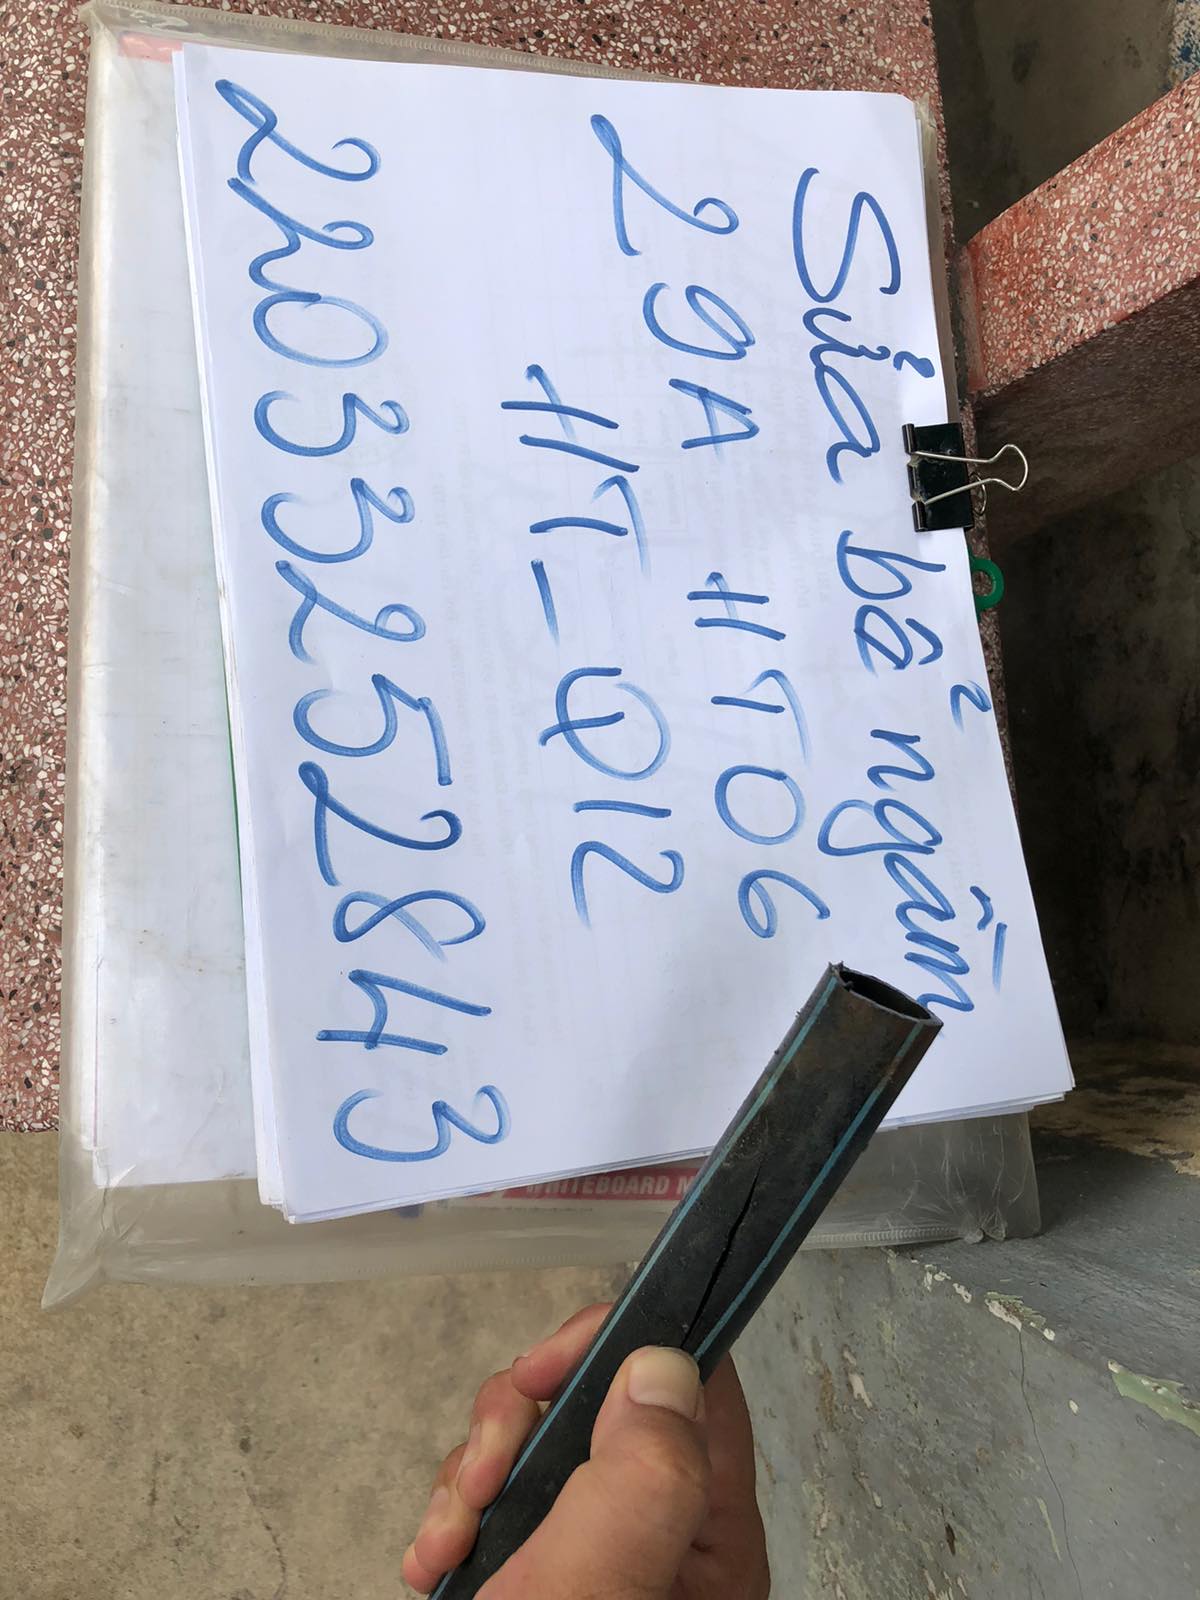 Sửa bể ngầm
29A HT06
HT-Q12
22033525843
WHITEBOARD M